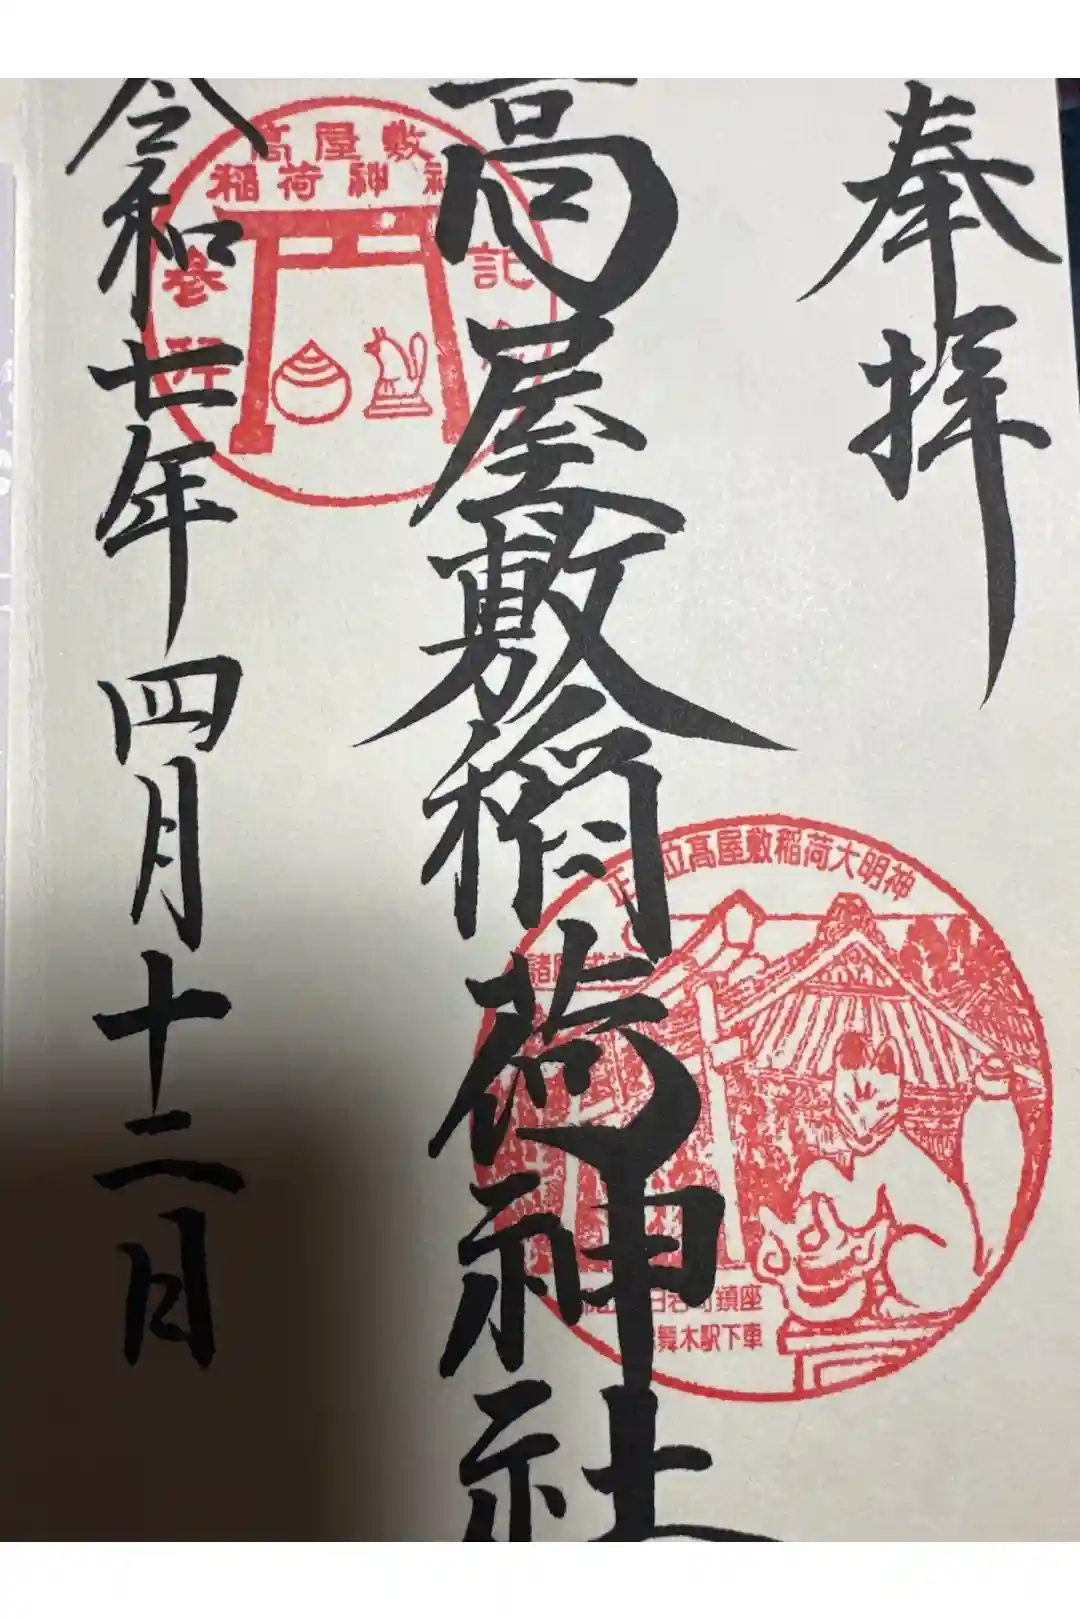 奉拝
高屋敷稲荷神社
令和七年四月十二日
高屋敷
稲荷神社
参拝
記念
正一位高屋敷稲荷大明神
鎮座
舞木駅下車